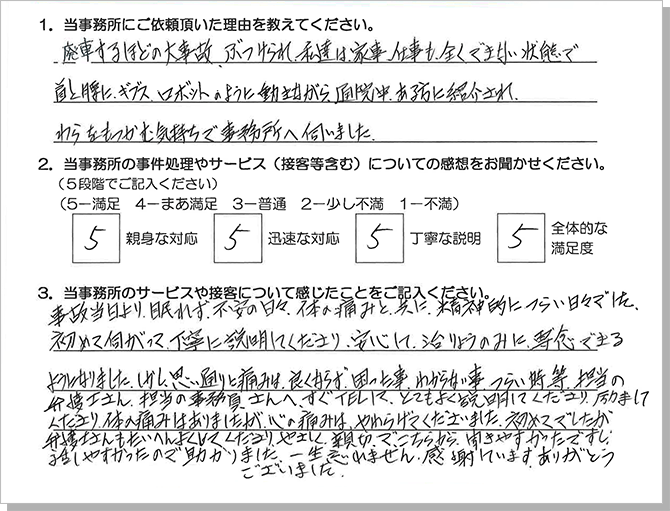 1. 当事務所にご依頼頂いた理由を教えてください。
廃車するほどの大事故、ぶつけられ、私達は、家事、仕事も、全くできない状態で
首と腰に、ギブス、ロボットのように動きながら、通院中、ある方に紹介され、
わらをもつかむ気持ちで事務所へ伺いました。
2. 当事務所の事件処理やサービス（接客等含む）についての感想をお聞かせください。
（5段階でご記入ください）
（5－満足 4－まあ満足 3－普通 2－少し不満 1－不満）
5 親身な対応 5 迅速な対応 5 丁寧な説明 5 全体的な満足度
3. 当事務所のサービスや接客について感じたことをご記入ください。
事故当日より、眠れず、不安の日々、体の痛みと、共に、精神的につらい日々でした。
初めて伺がって、丁寧に説明してくださり、安心して、治りょうのみに、専念できる
ようになりました。しかし、思い通りと痛みは、良くならず、困った事、わからない事、つらい時、等、担当の
弁護士さん、担当の事務員さんへ、すぐTELして、とてもよく説明してくださり、励まして
くださり、体の痛みはありましたが、心の痛みは、やわらげてくださいました。初めてでしたが
弁護士さんもたいへんよくしてくださり、やさしく、親切、でこちらから、聞きやすかったですし
話しやすかったので助かりました。一生忘れません。感謝しています。ありがとう
ございました。